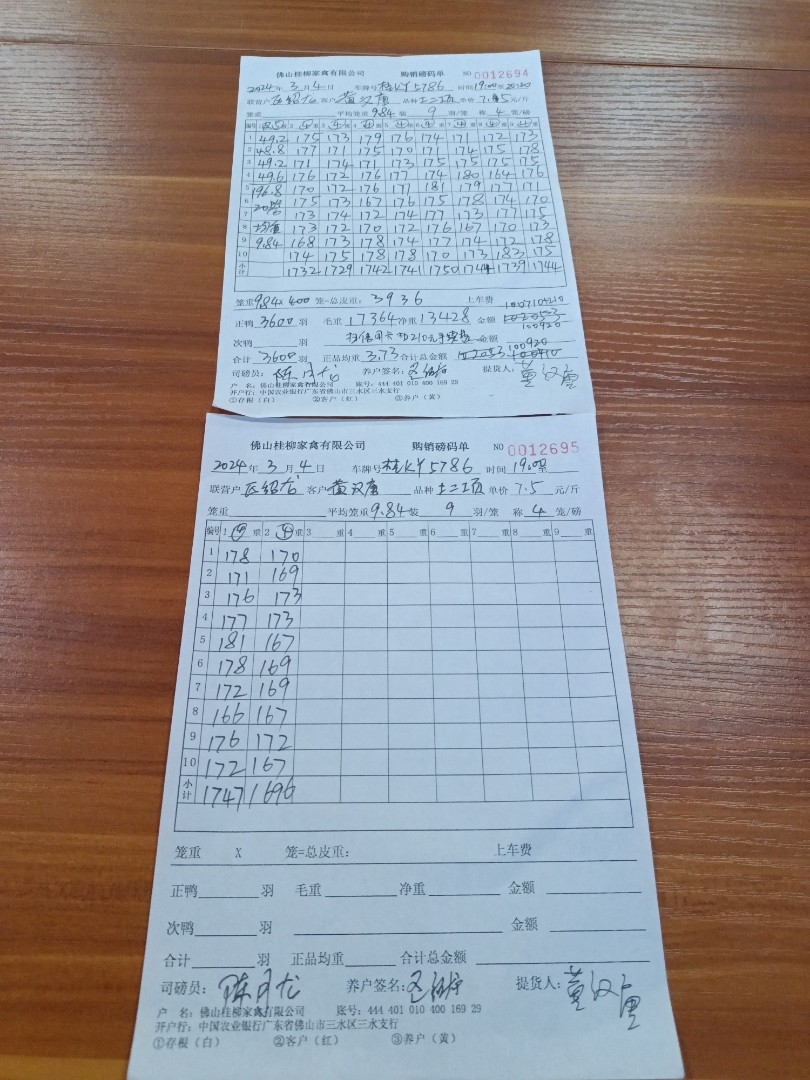 佛山桂柳家禽有限公司 购销磅码单 NO 0012694
2024年3月4日 车牌号桂KY5786 时间19:00至20:20
联营户 区绍龙 客户 黄汉唐 品种 土二顶 单价 7.5元/斤
笼重 平均笼重9.84 装 9 羽/笼 称 4 笼/磅
编号 1 重 2 4 重 3 4 重 4 4 重 5 4 重 6 4 重 7 4 重 8 4 重 9 4 重
1 49.2 175 173 179 176 174 171 172 173
2 48.8 177 171 175 170 171 174 175 178
3 49.2 171 174 171 173 175 175 175 175
4 49.6 176 172 176 177 174 180 164 176
5 196.8 170 172 176 171 181 179 177 171
6 20笼 175 173 167 176 175 178 174 170
7 173 174 172 174 177 173 177 175
8 均重 173 172 170 172 176 167 170 173
9 9.84 168 173 178 174 177 174 172 178
10 174 175 178 178 170 173 183 175
小计 1732 1729 1742 1741 1750 1744 1739 1744
笼重 9.84 X 400 笼=总皮重: 3936 上车费
正鸭 3600 羽 毛重 17364 净重 13428 金额
100920
次鸭 羽 扫信用卡加210元手续费 金额
100920
合计 3600 羽 正品均重 3.73 合计总金额
司磅员: 养户签名: 提货人: 黄汉唐
户 名: 佛山桂柳家禽有限公司 账号: 444 401 010 400 169 29
开户行: 中国农业银行广东省佛山市三水区三水支行
①存根(白) ②客户(红) ③养户(黄)
佛山桂柳家禽有限公司 购销磅码单 NO 0012695
2024年3月4日 车牌号桂KY5786 时间19:00至
联营户 区绍龙 客户 黄汉唐 品种 土二顶 单价 7.5 元/斤
笼重 平均笼重9.84 装 9 羽/笼 称 4 笼/磅
编号 1 4 重 2 4 重 3 重 4 重 5 重 6 重 7 重 8 重 9 重
1 178 170
2 171 169
3 176 173
4 177 173
5 181 167
6 178 169
7 172 169
8 166 167
9 176 172
10 172 167
小计 1747 1696
笼重 X 笼=总皮重: 上车费
正鸭 羽 毛重 净重 金额
次鸭 羽 金额
合计 羽 正品均重 合计总金额
司磅员: 养户签名: 提货人: 黄汉唐
户 名: 佛山桂柳家禽有限公司 账号: 444 401 010 400 169 29
开户行: 中国农业银行广东省佛山市三水区三水支行
①存根(白) ②客户(红) ③养户(黄)